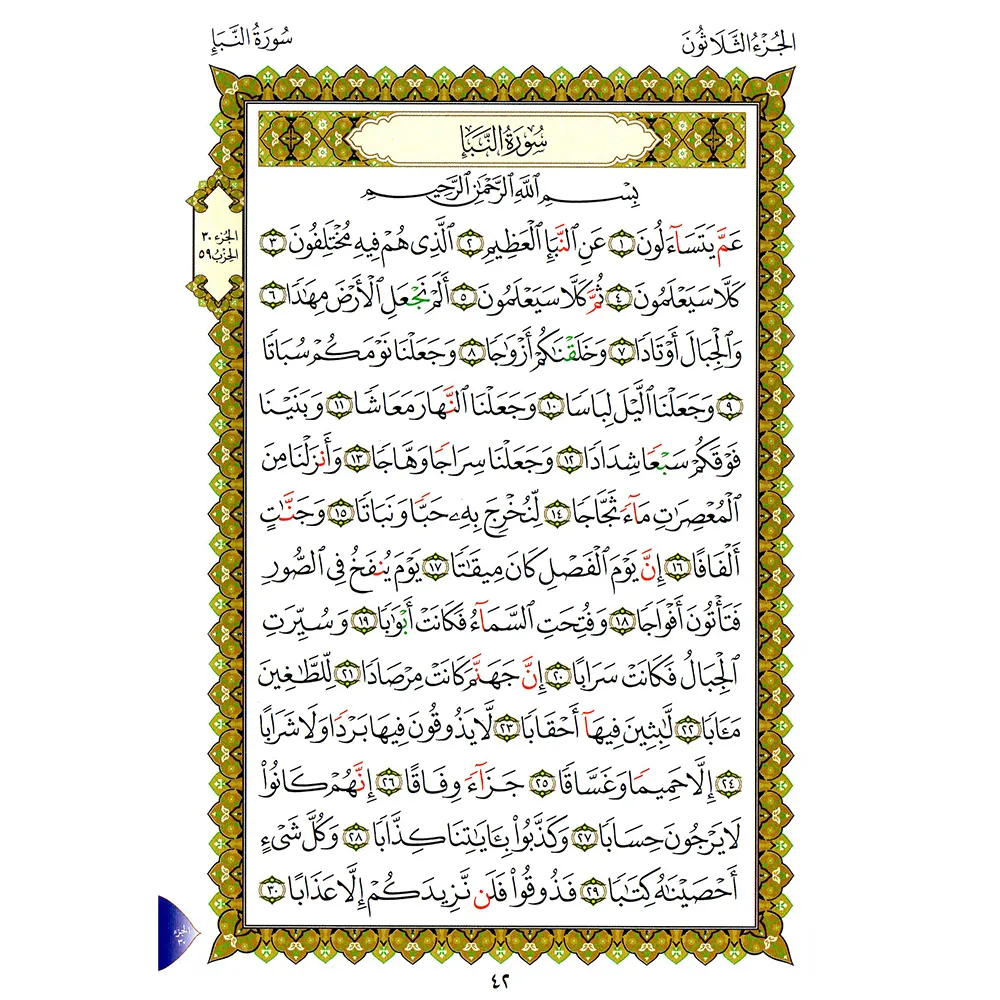 سُورَةُ النَّبَإِ
الجُزْءُ الثَّلَاثُونَ
سُورَةُ النَّبَإِ
بِسْمِ ٱللَّهِ ٱلرَّحْمَٰنِ ٱلرَّحِيمِ
الجزء ٣٠
الحزب ٥٩
عَمَّ يَتَسَآءَلُونَ ١ عَنِ ٱلنَّبَإِ ٱلْعَظِيمِ ٢ ٱلَّذِى هُمْ فِيهِ مُخْتَلِفُونَ ٣
كَلَّا سَيَعْلَمُونَ ٤ ثُمَّ كَلَّا سَيَعْلَمُونَ ٥ أَلَمْ نَجْعَلِ ٱلْأَرْضَ مِهَٰدًا ٦
وَٱلْجِبَالَ أَوْتَادًا ٧ وَخَلَقْنَٰكُمْ أَزْوَٰجًا ٨ وَجَعَلْنَا نَوْمَكُمْ سُبَاتًا
٩ وَجَعَلْنَا ٱلَّيْلَ لِبَاسًا ١٠ وَجَعَلْنَا ٱلنَّهَارَ مَعَاشًا ١١ وَبَنَيْنَا
فَوْقَكُمْ سَبْعًا شِدَادًا ١٢ وَجَعَلْنَا سِرَاجًا وَهَّاجًا ١٣ وَأَنزَلْنَا مِنَ
ٱلْمُعْصِرَٰتِ مَآءً ثَجَّاجًا ١٤ لِّنُخْرِجَ بِهِۦ حَبًّا وَنَبَاتًا ١٥ وَجَنَّٰتٍ
أَلْفَافًا ١٦ إِنَّ يَوْمَ ٱلْفَصْلِ كَانَ مِيقَٰتًا ١٧ يَوْمَ يُنفَخُ فِى ٱلصُّورِ
فَتَأْتُونَ أَفْوَاجًا ١٨ وَفُتِحَتِ ٱلسَّمَآءُ فَكَانَتْ أَبْوَٰبًا ١٩ وَسُيِّرَتِ
ٱلْجِبَالُ فَكَانَتْ سَرَابًا ٢٠ إِنَّ جَهَنَّمَ كَانَتْ مِرْصَادًا ٢١ لِّلطَّٰغِينَ
مَـَٔابًا ٢٢ لَّٰبِثِينَ فِيهَآ أَحْقَابًا ٢٣ لَّا يَذُوقُونَ فِيهَا بَرْدًا وَلَا شَرَابًا
٢٤ إِلَّا حَمِيمًا وَغَسَّاقًا ٢٥ جَزَآءً وِفَاقًا ٢٦ إِنَّهُمْ كَانُوا۟
لَا يَرْجُونَ حِسَابًا ٢٧ وَكَذَّبُوا۟ بِـَٔايَٰتِنَا كِذَّابًا ٢٨ وَكُلَّ شَىْءٍ
أَحْصَيْنَٰهُ كِتَٰبًا ٢٩ فَذُوقُوا۟ فَلَن نَّزِيدَكُمْ إِلَّا عَذَابًا ٣٠
الجزء
٣٠
٤٢